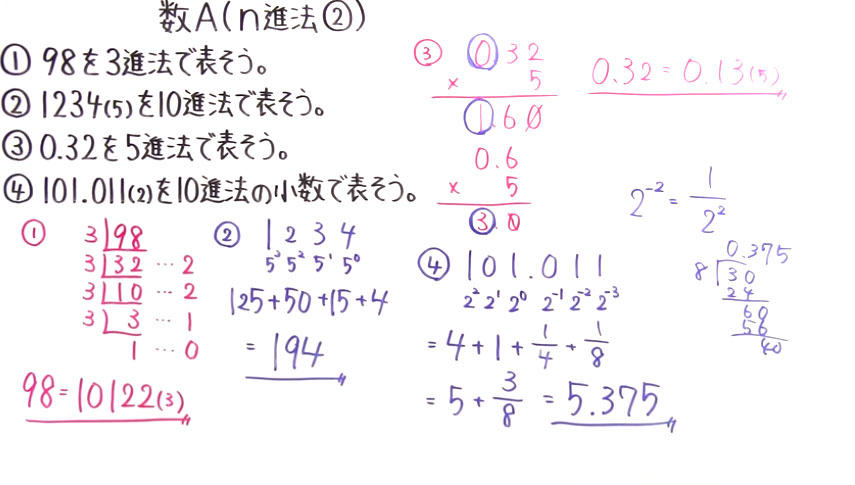 数A(n進法②)
① 98を3進法で表そう。
② 1234(5)を10進法で表そう。
③ 0.32を5進法で表そう。
④ 101.011(2)を10進法の小数で表そう。
① 3)98
3)32 … 2
3)10 … 2
3)3 … 1
1 … 0
98=10122(3)
② 1 2 3 4
5³ 5² 5¹ 5⁰
125+50+15+4
= 194
③ 0.32
× 5
1.60
0.6
× 5
3.0
0.32 = 0.13(5)
④ 101.011
2² 2¹ 2⁰ 2⁻¹ 2⁻² 2⁻³
= 4 + 1 + 1/4 + 1/8
= 5 + 3/8 = 5.375
2⁻² = 1/2²
0.375
8)30
24
60
56
40